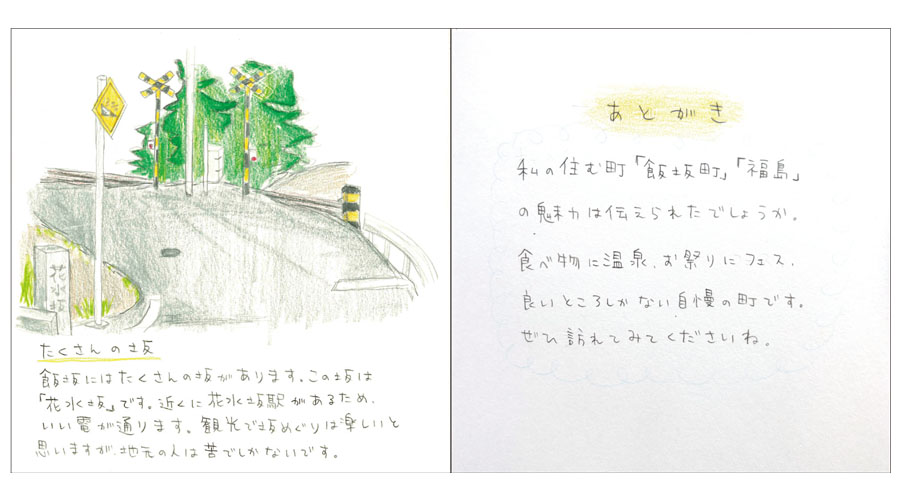 花水坂
たくさんの坂
飯坂にはたくさんの坂があります。この坂は
「花水坂」です。近くに花水坂駅があるため、
いい電が通ります。観光で坂めぐりは楽しいと
思いますが、地元の人は苦でしかないです。
あとがき
私の住む町「飯坂町」「福島」
の魅力は伝えられたでしょうか。
食べ物に温泉、お祭りにフェス、
良いところしかない自慢の町です。
ぜひ訪れてみてくださいね。